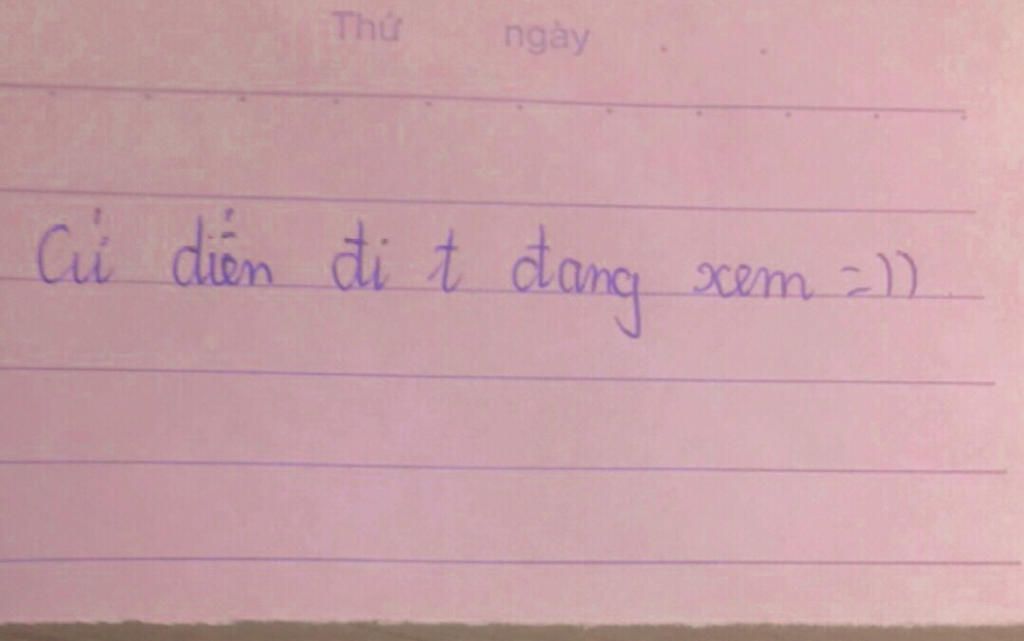 Thứ ngày
Cứ diễn đi t đang xem =))